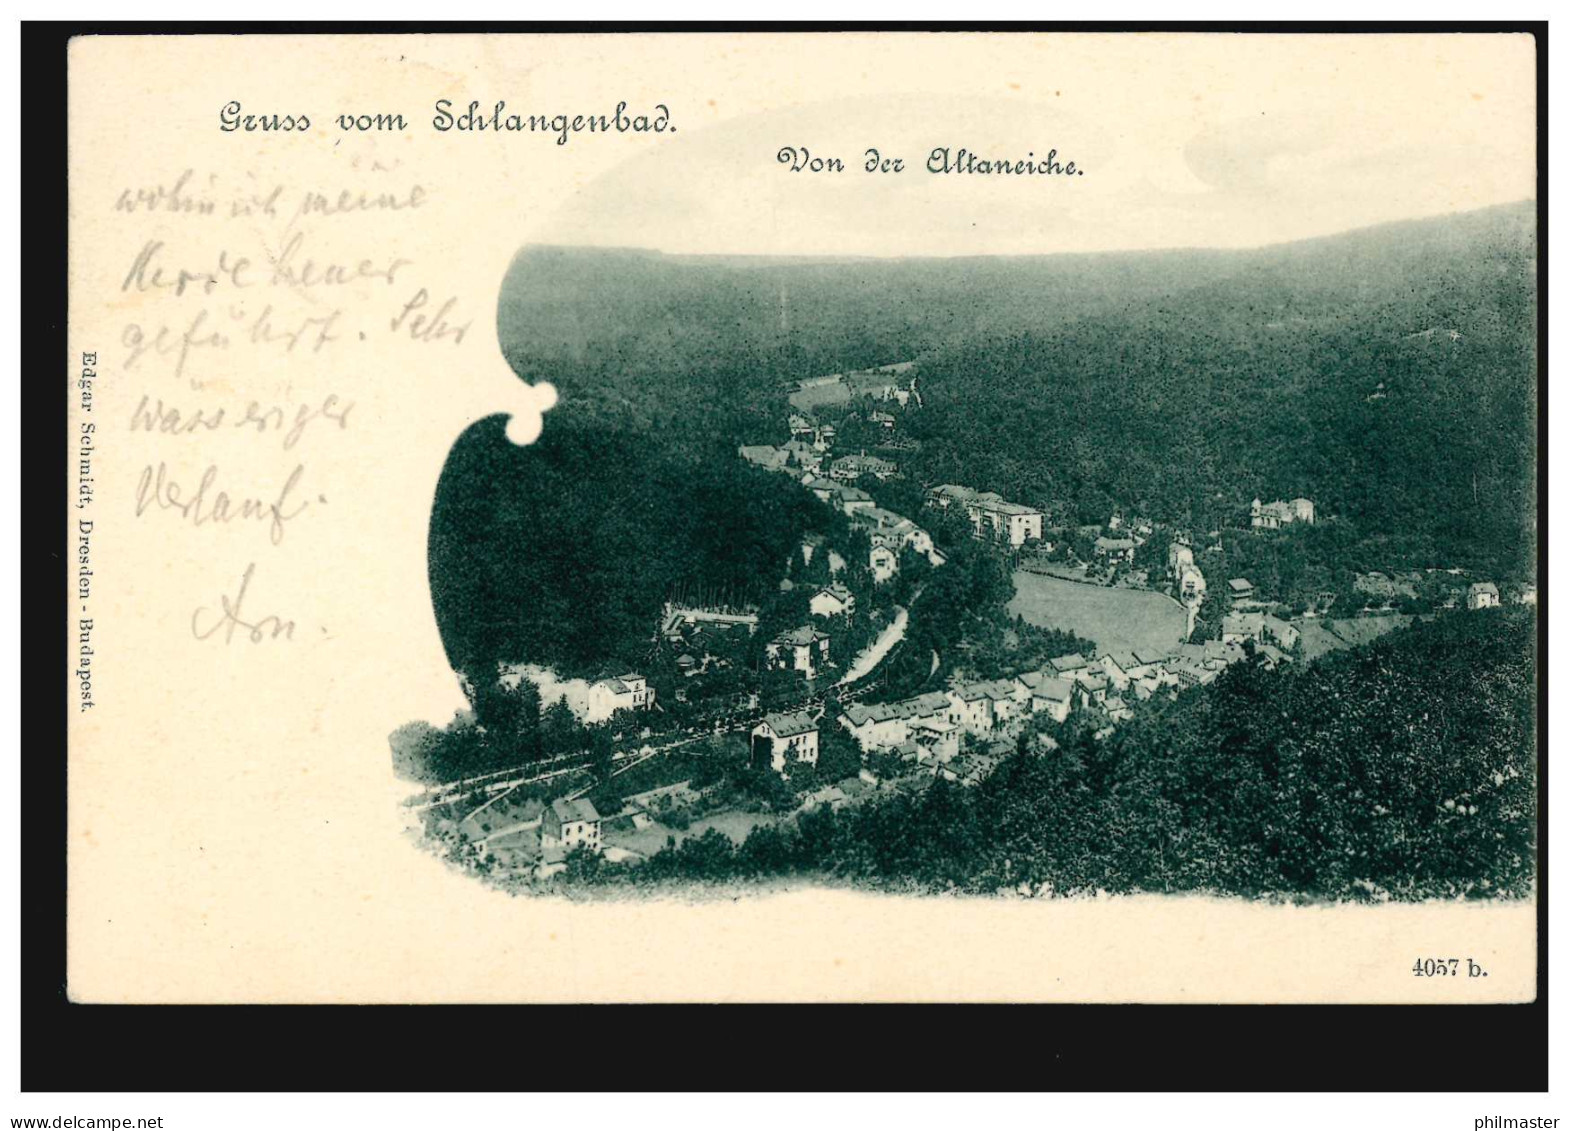 Gruss vom Schlangenbad.
Von der Altaneiche.
wohin ich meine
Herde heuer
geführt. Sehr
wässeriger
Verlauf.
Edgar Schmidt, Dresden - Budapest.
4057 b.
www.delcampe.net
philmaster